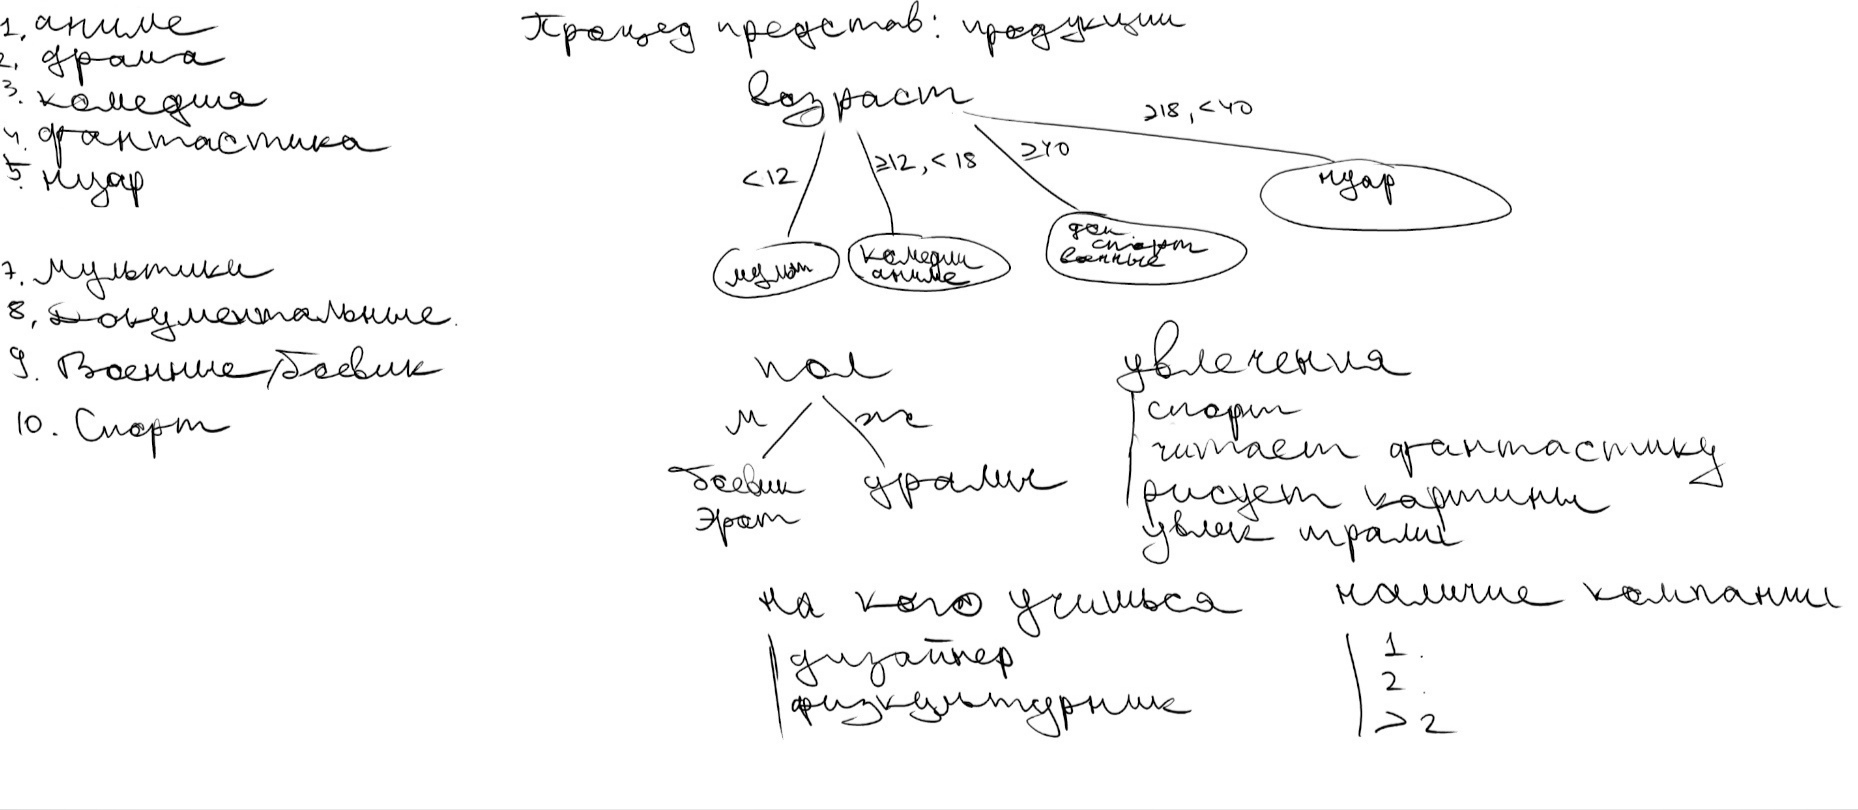 1. аниме
2. драма
3. комедия
4. фантастика
5. нуар
7. мультики
8. Документальные.
9. Военные/Боевик
10. Спорт
Процед представ: продукции
возраст
<12
≥12, <18
≥40
≥18, <40
мульт
комедии
аниме
док
спорт
военные
нуар
пол
м
ж
боевик
эрот
драмы
увлечения
спорт
читает фантастику
рисует картины
увлек
на кого учишься
дизайнер
физкультурник
наличие компании
1.
2.
>2